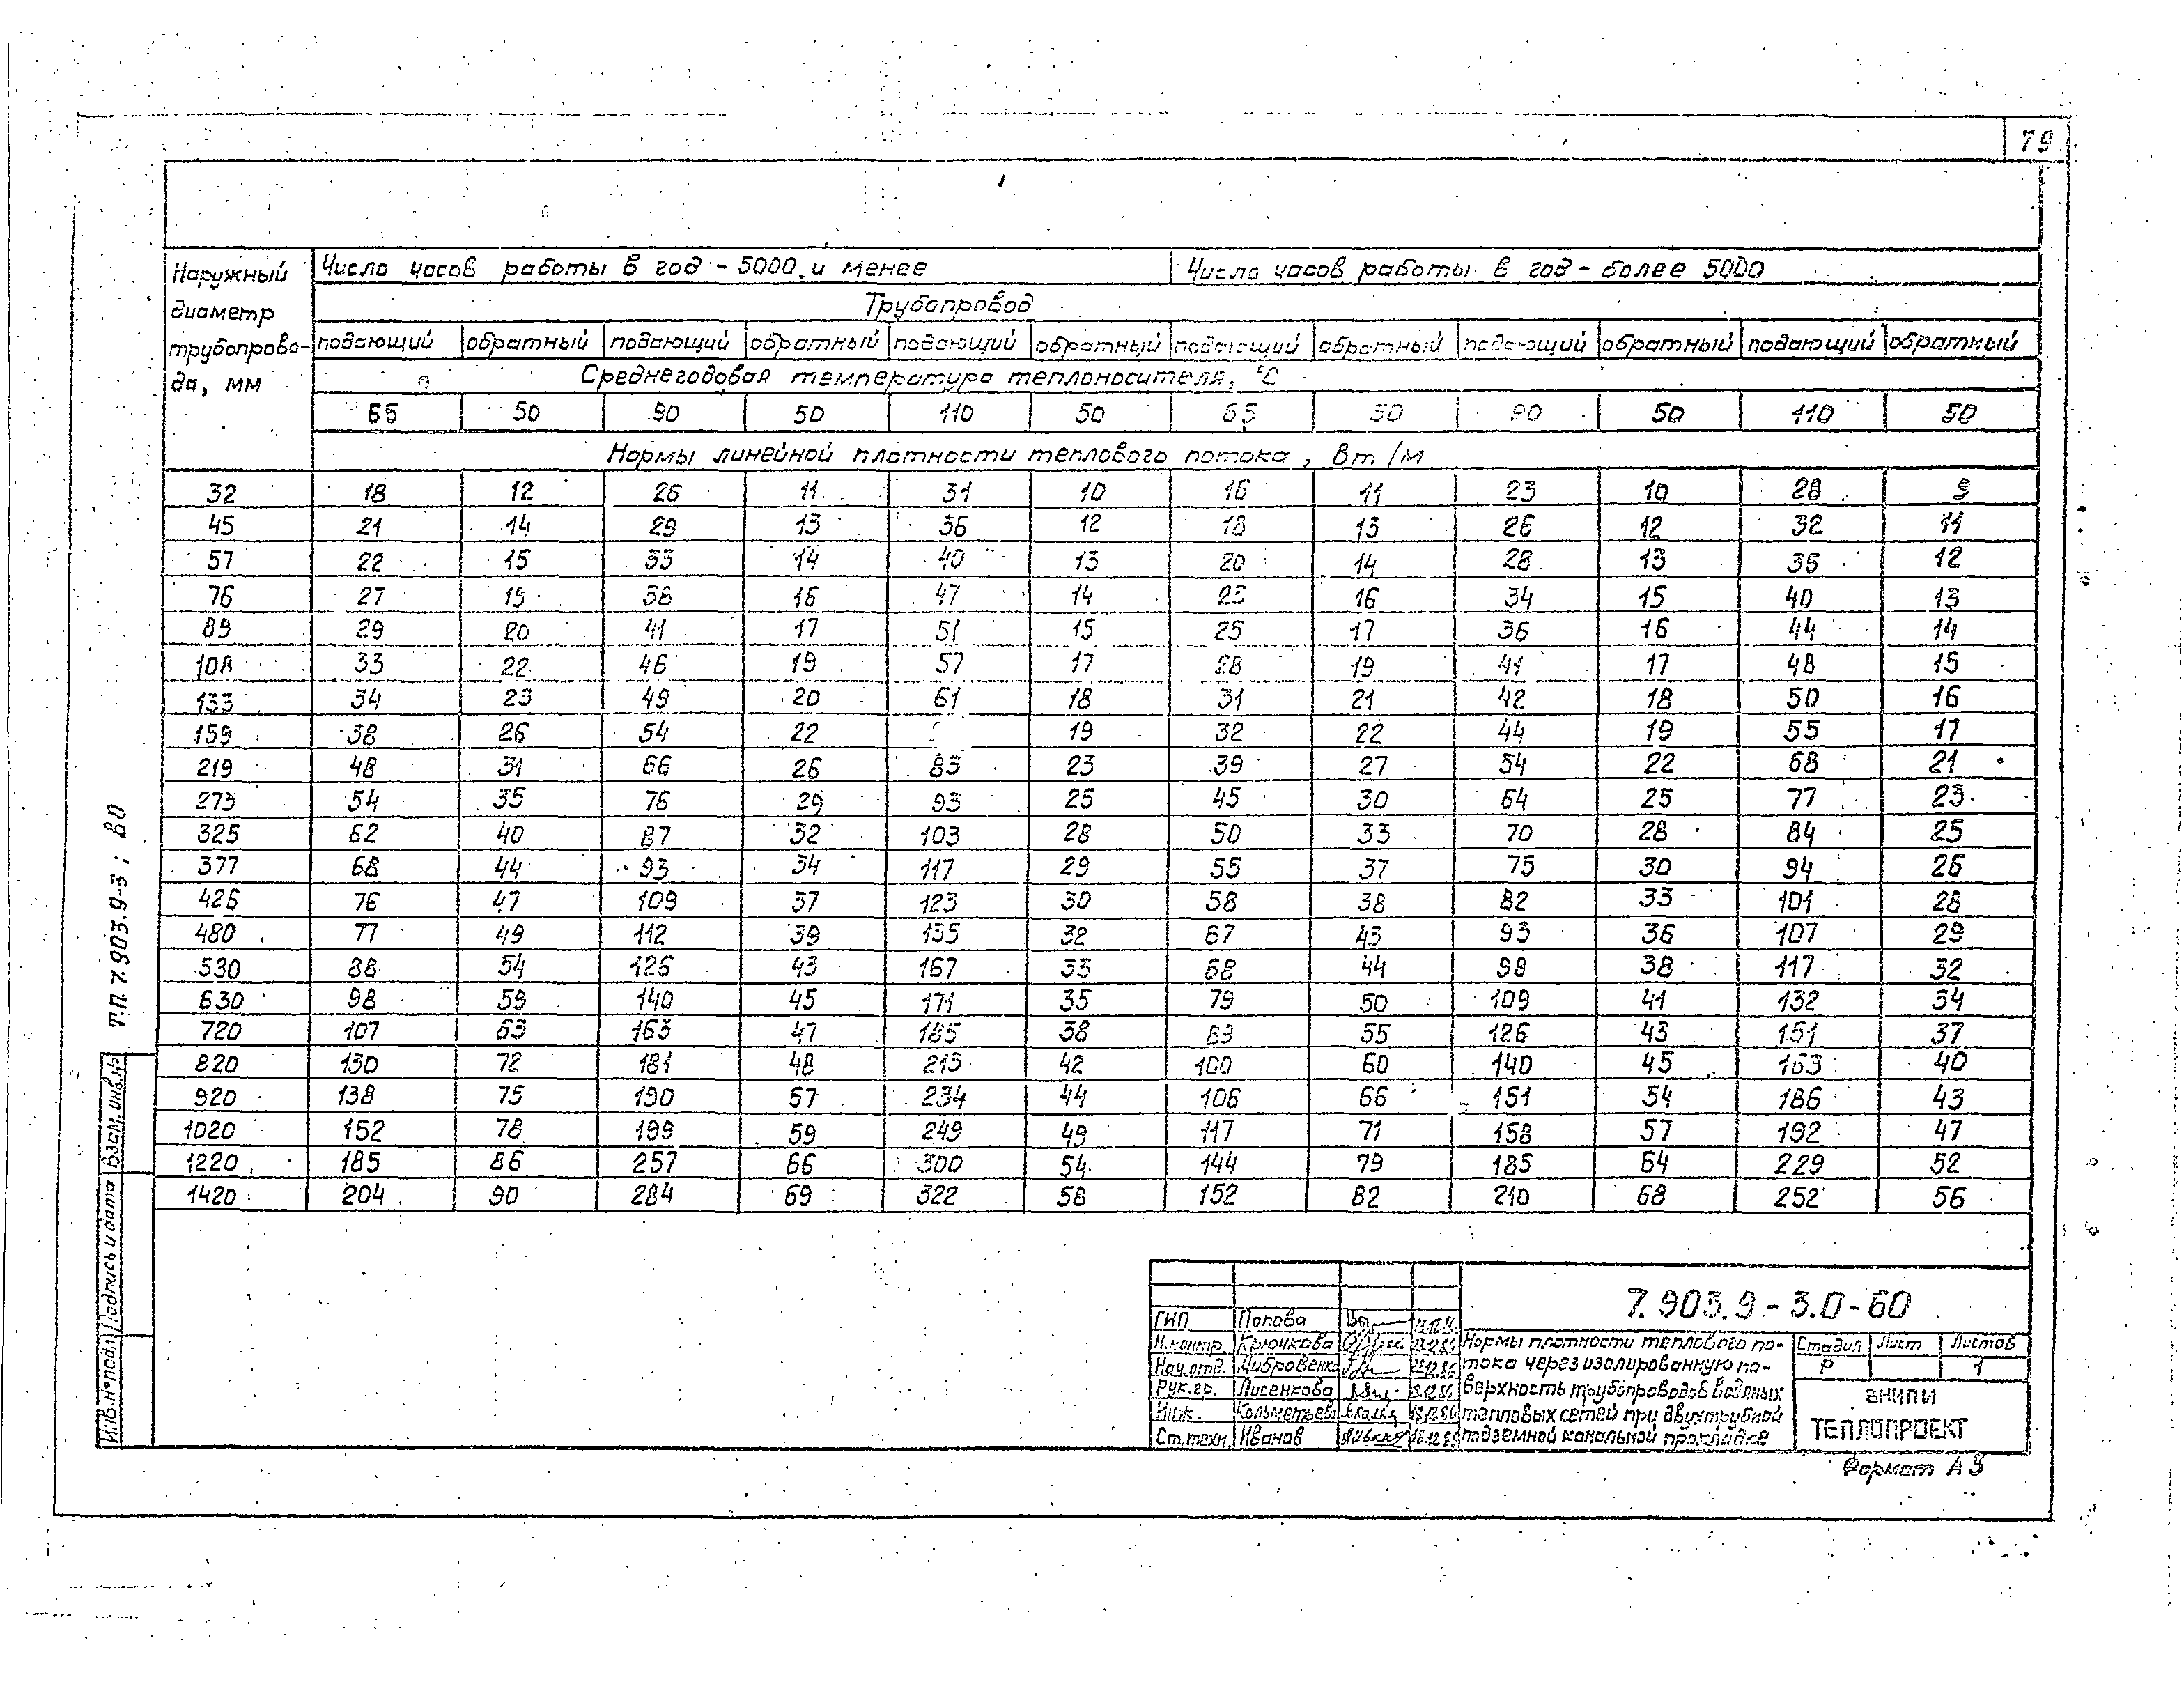 79
Наружный диаметр трубопрово-да, мм
Число часов работы в год - 5000 и менее
Число часов работы в год - более 5000
Трубопровод
подающий обратный подающий обратный подающий обратный подающий обратный подающий обратный подающий обратный
Среднегодовая температура теплоносителя, °С
65 50 90 50 110 50 65 50 90 50 110 50
Нормы линейной плотности теплового потока, Вт/м
32 18 12 26 11 31 10 16 11 23 10 28 9
45 21 14 29 13 36 12 18 13 26 12 32 11
57 22 15 33 14 40 13 20 14 28 13 35 12
76 27 19 38 16 47 14 23 16 34 15 40 13
89 29 20 41 17 51 15 25 17 36 16 44 14
108 33 22 46 19 57 17 28 19 41 17 48 15
133 34 23 49 20 61 18 31 21 42 18 50 16
159 38 26 54 22 19 32 22 44 19 55 17
219 48 31 66 26 83 23 39 27 54 22 68 21
273 54 35 76 29 93 25 45 30 64 25 77 23
325 62 40 87 32 103 28 50 33 70 28 84 25
377 68 44 93 34 117 29 55 37 75 30 94 26
426 76 47 109 37 123 30 58 38 82 33 101 28
480 77 49 112 39 135 32 67 43 93 36 107 29
530 88 54 126 43 167 33 68 44 98 38 117 32
630 98 59 140 45 171 35 79 50 109 41 132 34
720 107 63 163 47 185 38 89 55 126 43 151 37
820 130 72 181 48 213 42 100 60 140 45 163 40
920 138 75 190 57 234 44 106 66 151 54 186 43
1020 152 78 199 59 249 49 117 71 158 57 192 47
1220 185 86 257 66 300 54 144 79 185 64 229 52
1420 204 90 284 69 322 58 152 82 210 68 252 56
Т.П. 7.903.9-3; В0
Взам. инв.№
Подпись и дата
Инв.№ подл.
7.903.9-3.0-60
ГИП Попова
Н.контр. Крючкова
Нач.отд. Цибровенко
Рук.гр. Лисенкова
Инж. Кальметьева
Ст.техн. Иванов
Нормы плотности теплового по-
тока через изолированную по-
верхность трубопроводов водяных
тепловых сетей при двухтрубной
подземной канальной прокладке
Стадия Лист Листов
Р 1
ВНИПИ
ТЕПЛОПРОЕКТ
Формат А3